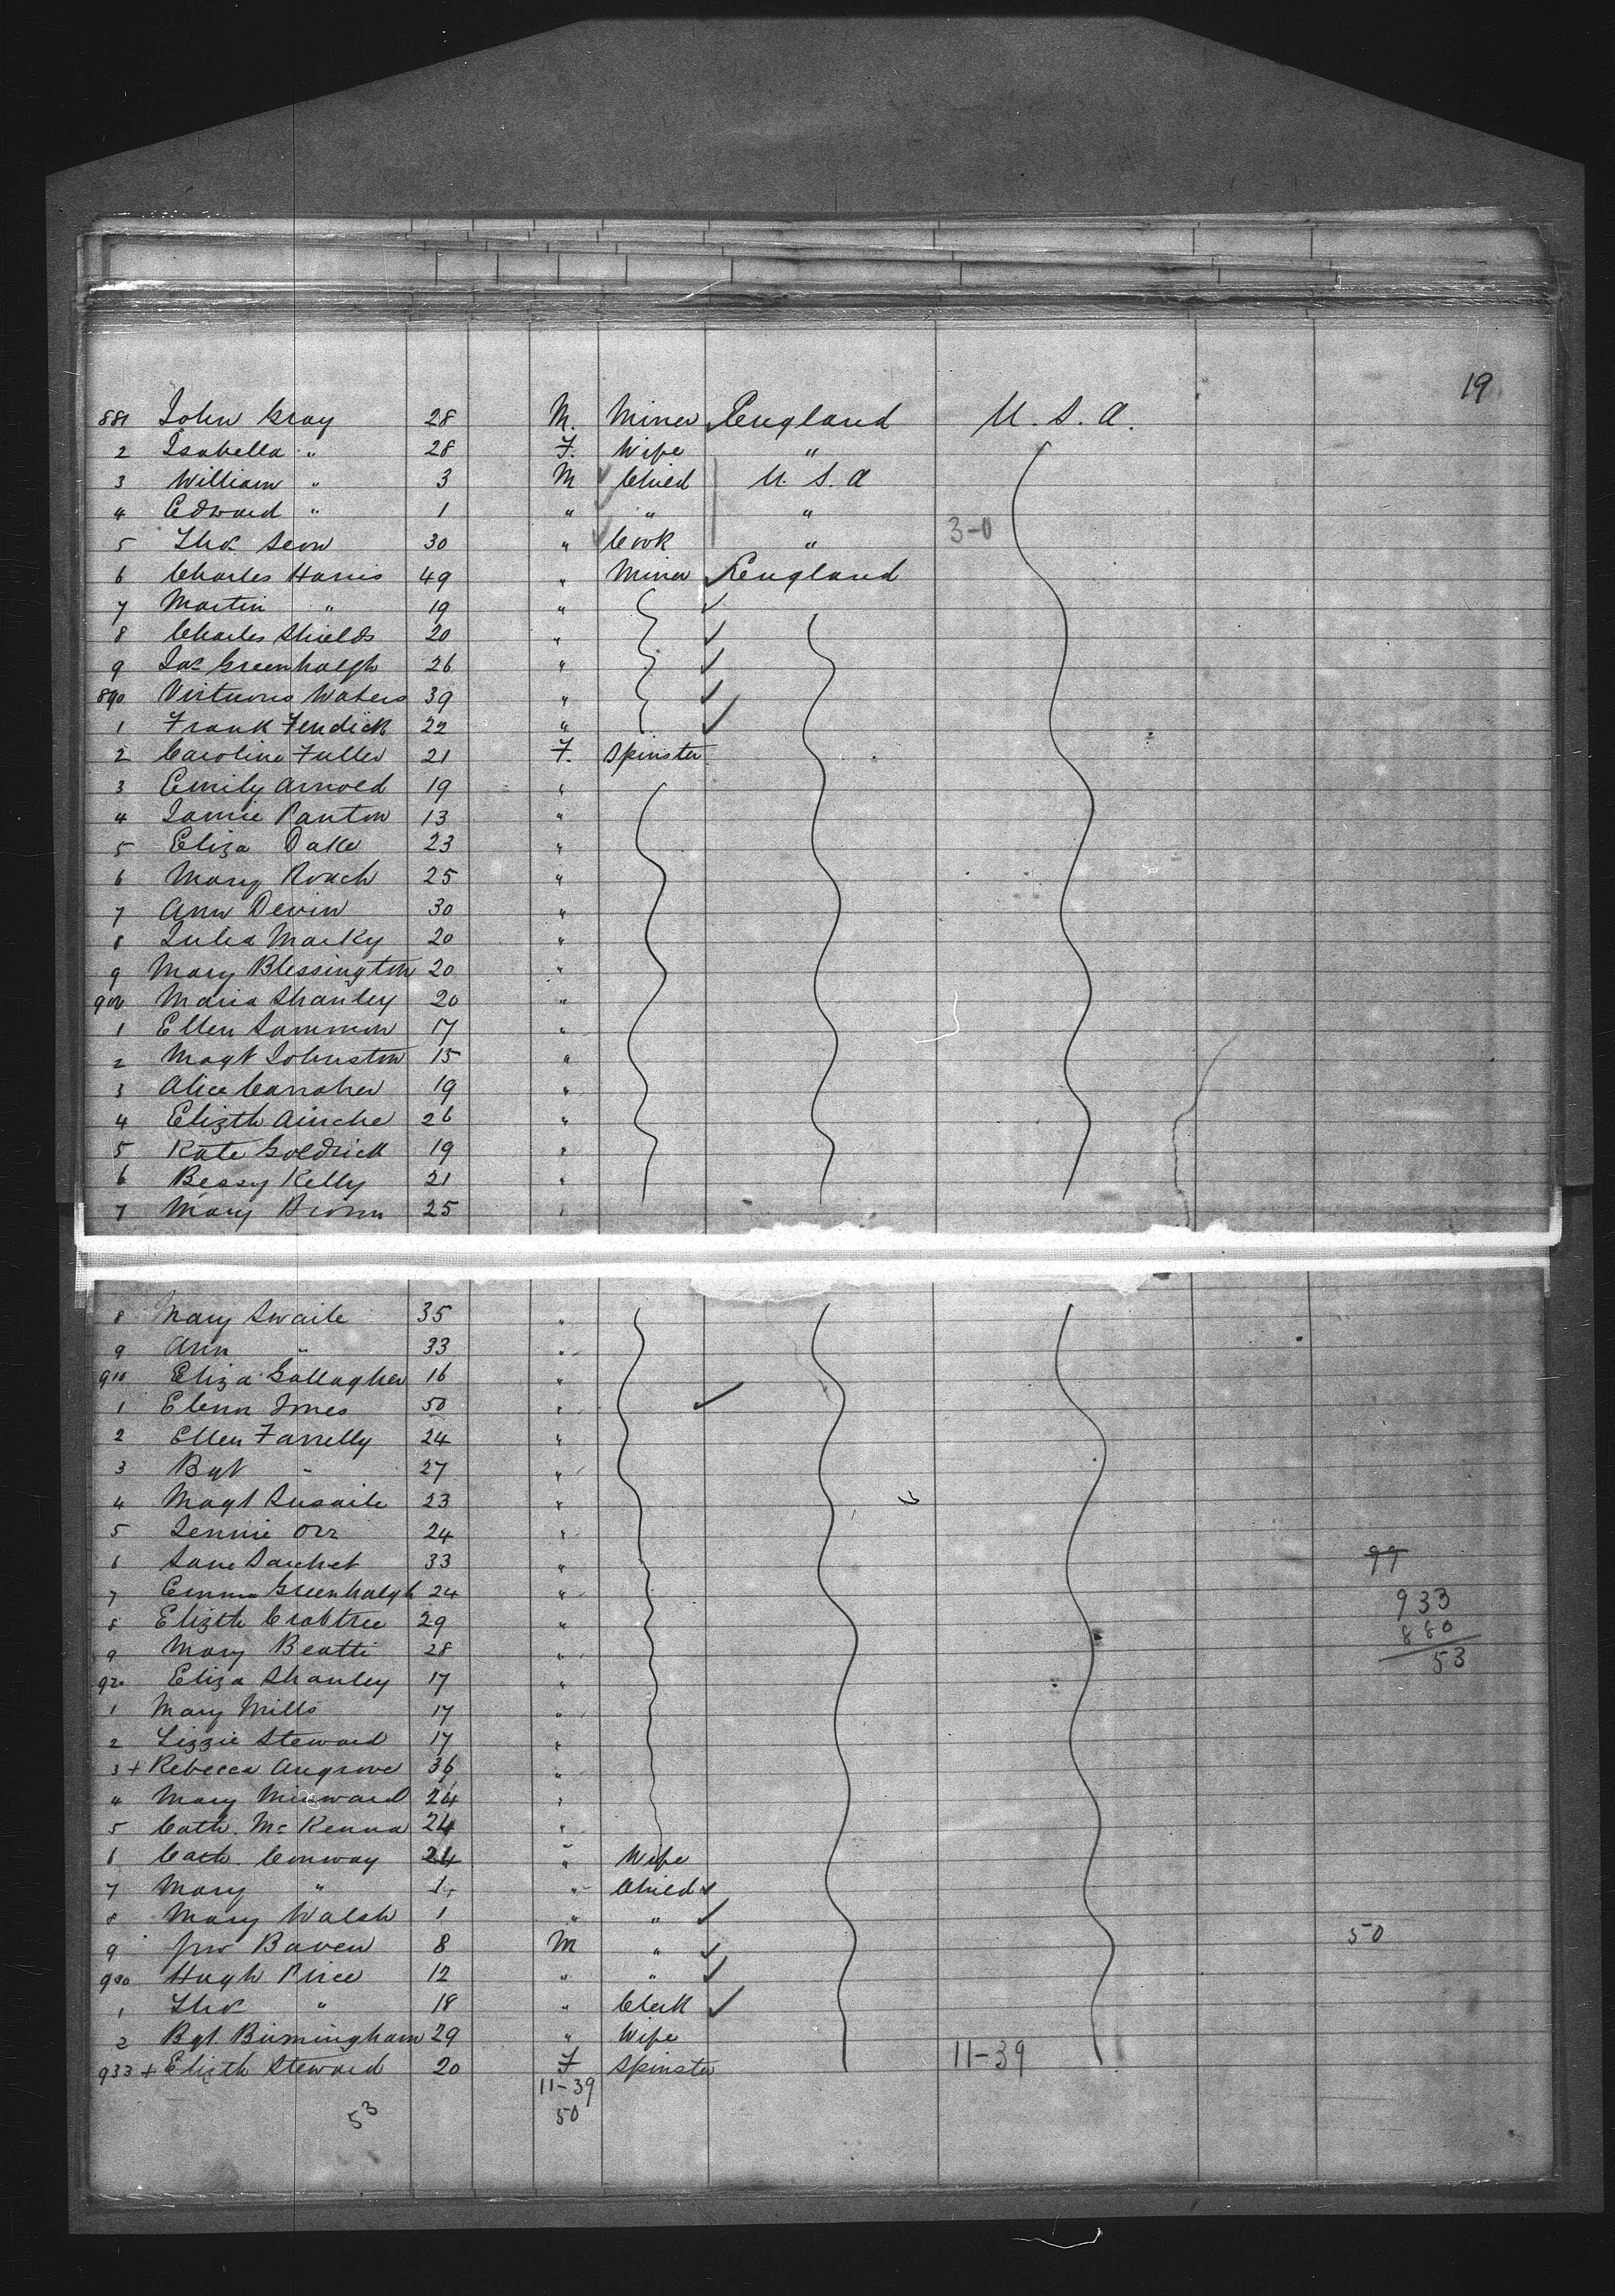 19
881 John Gray 28 M. Miner England U. S. A.
2 Isabella " 28 F. Wife "
3 William " 3 M Child U. S. A
4 Edward " 1 " " "
5 Thos 30 " Cook " 3-0
6 Charles Harris 49 " Miner England
7 Martin " 19 "
8 Charles Shields 20 "
9 Jas Greenhalgh 26 "
890 Virtuous Waters 39 "
1 Frank Fendick 22 "
2 Caroline Fuller 21 F. Spinster
3 Emily Arnold 19 "
4 Janie Panton 13 "
5 Eliza Dake 23 "
6 Mary Roach 25 "
7 Ann Devin 30 "
8 Julia Marky 20 "
9 Mary Blessington 20 "
900 Maria Shanley 20 "
1 Ellen Sammon 17 "
2 Magt Johnston 15 "
3 Alice Carraher 19 "
4 Elizth 26 "
5 Kate Goldrick 19 "
6 Bessy Kelly 21 "
7 Mary Brown 25 "
8 Mary Swaile 35 "
9 Ann " 33 "
910 Eliza Gallagher 16 "
1 50 "
2 Ellen Farrelly 24 "
3 Bgt " 27 "
4 Magt 23 "
5 Jennie Orr 24 "
6 33 " 99
7 Emma Greenhalgh 24 " 933
8 Elizth Crabtree 29 " 880
9 Mary Beatti 28 " 53
920 Eliza Shanley 17 "
1 Mary Mills 17 "
2 Lizzie Steward 17 "
3 + Rebecca Angrove 36 "
4 Mary 24 "
5 Cath. McKenna 24 "
6 Cath. Conway 24 " Wife
7 Mary " 1 " Child
8 Mary Walsh 1 " "
9 Jno Baven 8 M " 50
930 Hugh Price 12 " "
1 Thos " 18 " Clerk
2 Bgt Birmingham 29 " Wife
933 + Elizth Steward 20 F Spinster 11-39
11-39
53 50